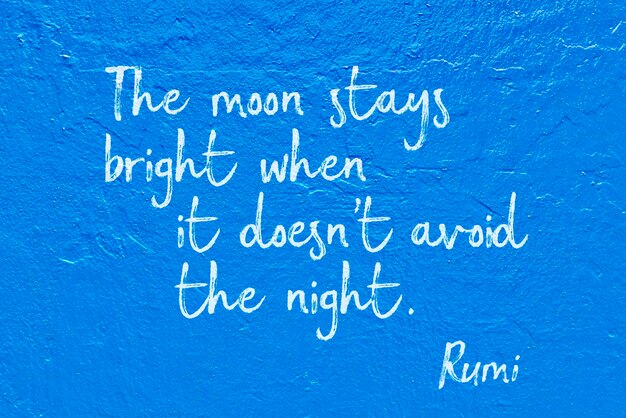 The moon stays
bright when
it doesn't avoid
the night.
Rumi